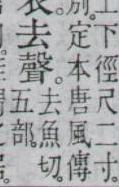 下徑尺二寸。
別。定本唐風傳
去聲。
去魚切。
五部。